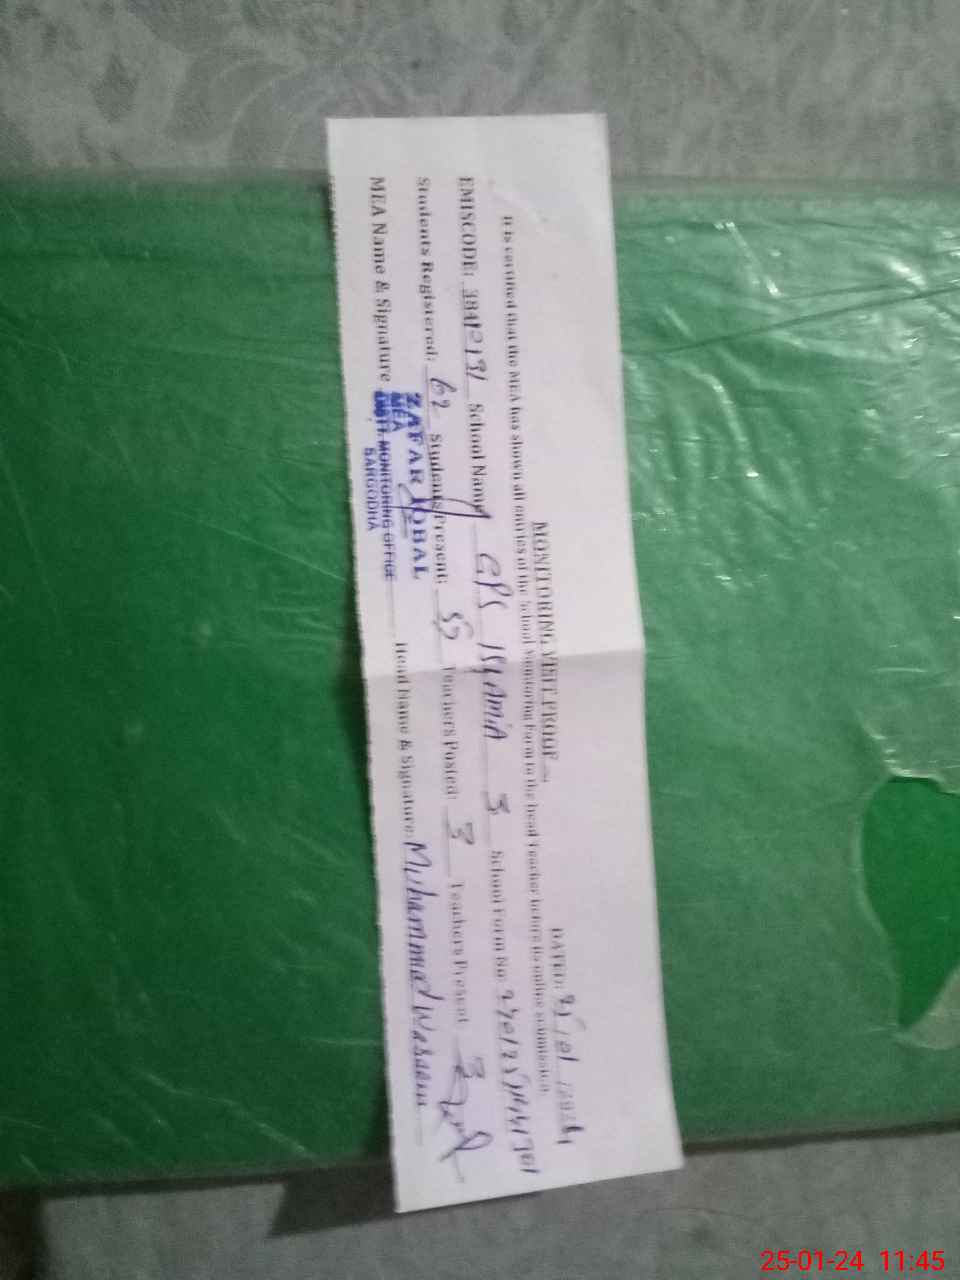 MONITORING VISIT PROOF
DATED: 25/01/2024
It is certified that the MEA has shown all entries of the School Monitoring Form to the head teacher before its online submission.
EMISCODE: 38412131 School Name GPS ISLAMIA 3 School Form No:
Students Registered: 62 Students Present: 59 Teachers Posted: 3 Teachers Present 3
MEA Name & Signature ZAFAR IQBAL Head Name & Signature: Muhammad Waseem
MEA
DISTT. MONITORING OFFICE
SARGODHA
25-01-24 11:45